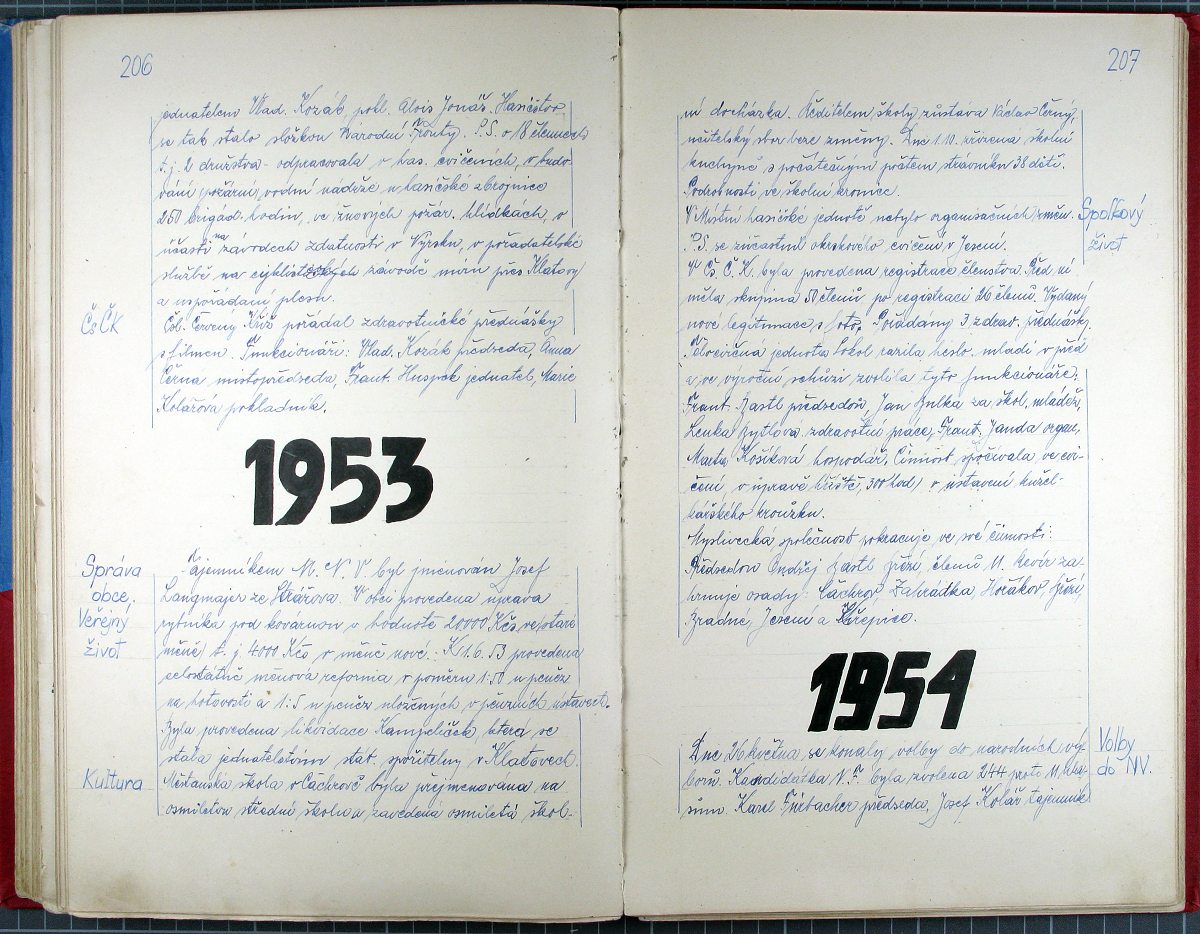 206
jednatelem Vlad. Kozák pokl. Alois Jonáš. Hasičstvo
se tak stalo složkou Národní Fronty. P.S. o 18 členech
t.j. 2 družstva - odpracovala v has. cvičeních, v budo-
vání požární vodní nádrže u hasičské zbrojnice
250 brigád. hodin, ve žňových požár. hlídkách, v
účasti na závodech zdatnosti v Nýrsku, v pořadatelské
službě na cyklistických závodě míru přes Klatovy
a uspořádání plesu.
ČsČK
Čsl. Červený Kříž pořádal zdravotnické přednášky
s filmem. Funkcionáři: Vlad. Kozák předseda, Anna
Černá místopředseda, Frant. Huspek jednatel, Marie
Kolářová pokladník.
1953
Správa
obce.
Veřejný
život
Tajemníkem M.N.V. byl jmenován Josef
Langmajer ze Strážova. V obci provedena úprava
rybníka pod kovárnou v hodnotě 20000 Kčs ve staré
měně t.j. 4000 Kčs v měně nové. K 1.6.53 provedena
celostátně měnová reforma v poměru 1:50 u peněz
na hotovosti a 1:5 u peněz uložených v peněžních ústavech.
Byla provedena likvidace Kampeliček, která se
stala jednatelstvím stát. spořitelny v Klatovech.
Kultura
Měšťanská škola v Čachrově byla přejmenována na
osmiletou střední školu a zavedena osmiletá škol-
207
ní docházka. Ředitelem školy zůstává Václav Černý,
učitelský sbor beze změny. Dne 1.10. zřízena školní
kuchyně s počátečným počtem strávníků 38 dětí.
Podrobnosti ve školní kronice.
Spolkový
život
V Místní hasičské jednotě nebylo organisačních změn.
P.S. se zúčastnil okrskového cvičení v Jesení.
V Čs. Č. K. byla provedena registrace členstva. Před ní
měla skupina 50 členů po registraci 26 členů. Vydány
nové legitimace s foto. Pořádány 3 zdrav. přednášky.
Tělocvičná jednota Sokol razila heslo mladí v před
a ve výroční schůzi zvolila tyto funkcionáře:
Frant. Bastl předsedou, Jan Bulka za škol. mládež,
Lenka Bytlová zdravotní práce, Frant. Janda organ.,
Marta Košíková hospodář. Činnost spočívala ve cvi-
čení, v úpravě hřiště, 300 hod, v ustavení kužel-
kářského kroužku.
Myslivecká společnost pokračuje ve své činnosti:
Předsedou Ondřej Bastl členů 11. Revír za-
hrnuje osady: Čachrov, Zahrádka Hořákov,
Bradné, Jesení a Chřepice.
1954
Volby
do NV.
Dne 26 května se konaly volby do národních vý-
borů. Kandidátka N.F. byla zvolena 244 proti 11 hla-
sům. Karel Fribacher předseda, Josef Kolář tajemník